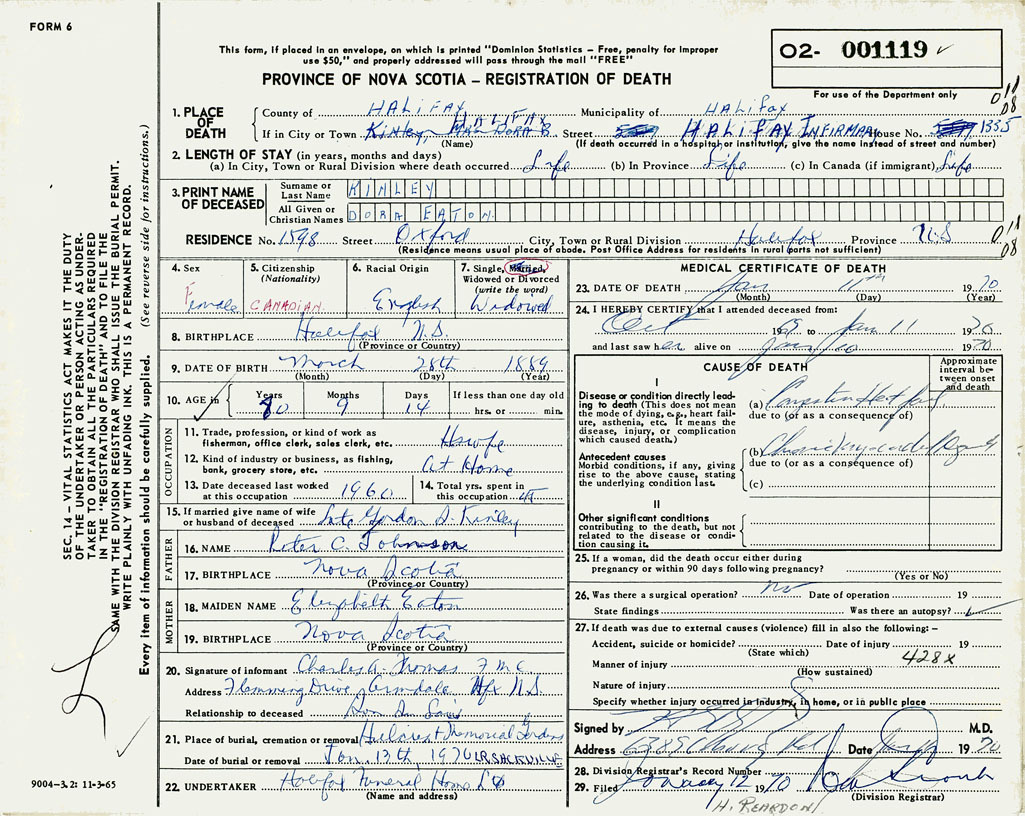 FORM 6
This form, if placed in an envelope, on which is printed "Dominion Statistics – Free, penalty for improper
use $50," and properly addressed will pass through the mail "FREE"
PROVINCE OF NOVA SCOTIA – REGISTRATION OF DEATH
02- 001119
For use of the Department only
1. PLACE OF DEATH
County of HALIFAX Municipality of HALIFAX
If in City or Town Kinley, HALIFAX Street HALIFAX INFIRMARY House No. 1335
(Name) (If death occurred in a hospital or institution, give the name instead of street and number)
2. LENGTH OF STAY (in years, months and days)
(a) In City, Town or Rural Division where death occurred Life (b) In Province Life (c) In Canada (if immigrant) Life
3. PRINT NAME OF DECEASED
Surname or Last Name KINLEY
All Given or Christian Names DORA EATON
RESIDENCE No. 1598 Street Oxford City, Town or Rural Division Halifax Province N.S
(Residence means usual place of abode. Post Office Address for residents in rural parts not sufficient)
4. Sex Female
5. Citizenship (Nationality) CANADIAN
6. Racial Origin English
7. Single, Married, Widowed or Divorced (write the word) Widowed
8. BIRTHPLACE Halifax N.S.
(Province or Country)
9. DATE OF BIRTH March 28th 1889
(Month) (Day) (Year)
10. AGE in Years 80 Months 9 Days 14 If less than one day old hrs. or min.
OCCUPATION
11. Trade, profession, or kind of work as fisherman, office clerk, sales clerk, etc. Hswfe
12. Kind of industry or business, as fishing, bank, grocery store, etc. At Home
13. Date deceased last worked at this occupation 1960
14. Total yrs. spent in this occupation
15. If married give name of wife or husband of deceased Late Gordon D. Kinley
FATHER
16. NAME Peter C. Johnson
17. BIRTHPLACE Nova Scotia
(Province or Country)
MOTHER
18. MAIDEN NAME Elizabeth Eaton
19. BIRTHPLACE Nova Scotia
(Province or Country)
20. Signature of informant Charles A. Thomas
Address Flemming Drive, Armdale Hfx N.S.
Relationship to deceased Son In Law
21. Place of burial, cremation or removal Hillcrest Memorial Gardens
Date of burial or removal Jan. 13th, 1970 LR. SACKVILLE
22. UNDERTAKER Halifax Funeral Home Ltd
(Name and address)
MEDICAL CERTIFICATE OF DEATH
23. DATE OF DEATH Jan 11th 1970
(Month) (Day) (Year)
24. I HEREBY CERTIFY that I attended deceased from:
Oct 19 to Jan 11 1970
and last saw her alive on Jan 10 1970
CAUSE OF DEATH
Approximate interval between onset and death
I
Disease or condition directly leading to death (This does not mean the mode of dying, e.g., heart failure, asthenia, etc. It means the disease, injury, or complication which caused death.)
(a) Congestive Heart
due to (or as a consequence of)
Antecedent causes
Morbid conditions, if any, giving rise to the above cause, stating the underlying condition last.
(b) Chronic
due to (or as a consequence of)
(c)
II
Other significant conditions contributing to the death, but not related to the disease or condition causing it.
25. If a woman, did the death occur either during pregnancy or within 90 days following pregnancy?
(Yes or No)
26. Was there a surgical operation? no Date of operation 19
State findings Was there an autopsy?
27. If death was due to external causes (violence) fill in also the following: –
Accident, suicide or homicide? Date of injury 19
(State which) 428x
Manner of injury
(How sustained)
Nature of injury
Specify whether injury occurred in industry, in home, or in public place
Signed by M.D.
Address Date 1970
28. Division Registrar's Record Number
29. Filed January 12 1970
(Division Registrar)
H. REARDON
SEC. 14 – VITAL STATISTICS ACT MAKES IT THE DUTY
OF THE UNDERTAKER OR PERSON ACTING AS UNDER-
TAKER TO OBTAIN ALL THE PARTICULARS REQUIRED
IN THE "REGISTRATION OF DEATH" AND TO FILE THE
SAME WITH THE DIVISION REGISTRAR WHO SHALL ISSUE THE BURIAL PERMIT.
WRITE PLAINLY WITH UNFADING INK. THIS IS A PERMANENT RECORD.
Every item of information should be carefully supplied. (See reverse side for instructions.)
9004-3.2: 11-3-65